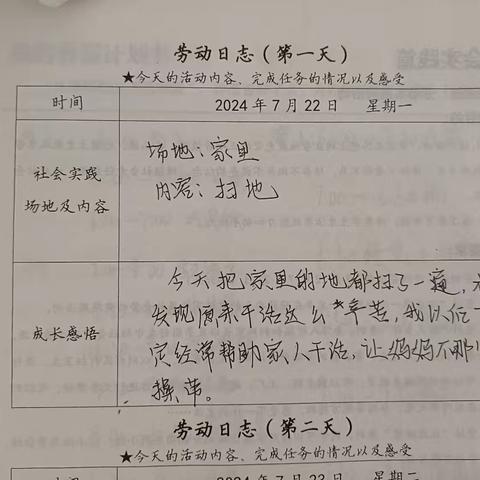 劳动日志(第一天)
★今天的活动内容、完成任务的情况以及感受
时间 2024年7月22日 星期一
社会实践
场地及内容
场地:家里
内容:扫地
成长感悟
今天把家里的地都扫了一遍,
发现原来干活这么辛苦,我以后一
定经常帮助家人干活,让妈妈不那
操劳。
劳动日志(第二天)
★今天的活动内容、完成任务的情况以及感受
2024年7月23日 星期二